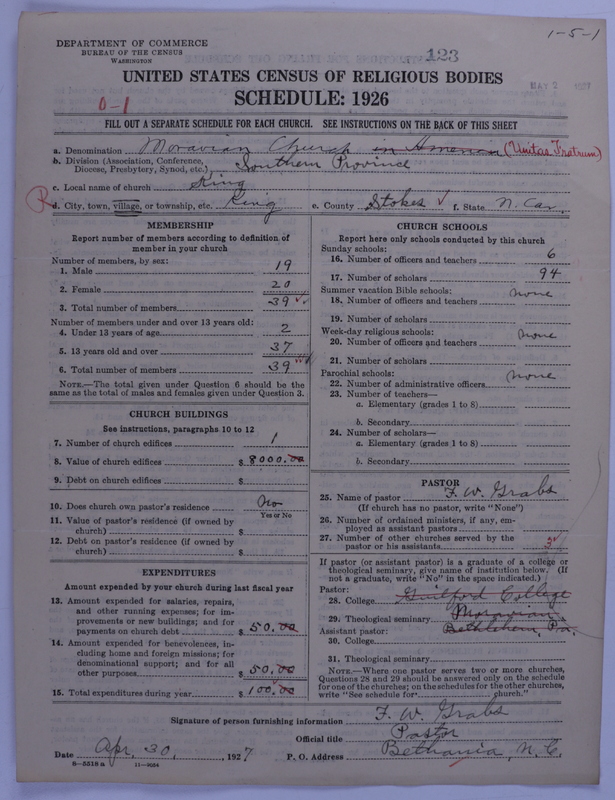 1-5-1
DEPARTMENT OF COMMERCE
BUREAU OF THE CENSUS
WASHINGTON
123
UNITED STATES CENSUS OF RELIGIOUS BODIES
MAY 2 1927
0-1
SCHEDULE: 1926
FILL OUT A SEPARATE SCHEDULE FOR EACH CHURCH. SEE INSTRUCTIONS ON THE BACK OF THIS SHEET
a. Denomination Moravian Church in America (Unitas Fratrum)
b. Division (Association, Conference, Diocese, Presbytery, Synod, etc.) Southern Province
c. Local name of church King
R d. City, town, village, or township, etc. King e. County Stokes f. State N. Car.
MEMBERSHIP
Report number of members according to definition of
member in your church
Number of members, by sex:
1. Male 19
2. Female 20
3. Total number of members 39
Number of members under and over 13 years old:
4. Under 13 years of age 2
5. 13 years old and over 37
6. Total number of members 39
NOTE.—The total given under Question 6 should be the
same as the total of males and females given under Question 3.
CHURCH BUILDINGS
See instructions, paragraphs 10 to 12
7. Number of church edifices 1
8. Value of church edifices $ 8000.00
9. Debt on church edifices $
10. Does church own pastor's residence No
Yes or No
11. Value of pastor's residence (if owned by
church) $
12. Debt on pastor's residence (if owned by
church) $
EXPENDITURES
Amount expended by your church during last fiscal year
13. Amount expended for salaries, repairs,
and other running expenses; for im-
provements or new buildings; and for
payments on church debt $ 50.00
14. Amount expended for benevolences, in-
cluding home and foreign missions; for
denominational support; and for all
other purposes $ 50.00
15. Total expenditures during year $ 100.00
CHURCH SCHOOLS
Report here only schools conducted by this church
Sunday schools:
16. Number of officers and teachers 6
17. Number of scholars 94
Summer vacation Bible schools:
18. Number of officers and teachers none
19. Number of scholars
Week-day religious schools:
20. Number of officers and teachers none
21. Number of scholars
Parochial schools:
22. Number of administrative officers none
23. Number of teachers—
a. Elementary (grades 1 to 8)
b. Secondary
24. Number of scholars—
a. Elementary (grades 1 to 8)
b. Secondary
PASTOR
25. Name of pastor F. W. Grabs
(If church has no pastor, write "None")
26. Number of ordained ministers, if any, em-
ployed as assistant pastors
27. Number of other churches served by the
pastor or his assistants 3
If pastor (or assistant pastor) is a graduate of a college or
theological seminary, give name of institution below. (If
not a graduate, write "No" in the space indicated.)
Pastor:
28. College Guilford College
29. Theological seminary Moravian
Assistant pastor: Bethlehem, Pa.
30. College
31. Theological seminary
NOTE.—Where one pastor serves two or more churches,
Questions 28 and 29 should be answered only on the schedule
for one of the churches; on the schedules for the other churches,
write "See schedule for church."
Signature of person furnishing information F. W. Grabs
Official title Pastor
Date Apr. 30, 1927 P. O. Address Bethania, N. C.
8-5518 a 11-9054